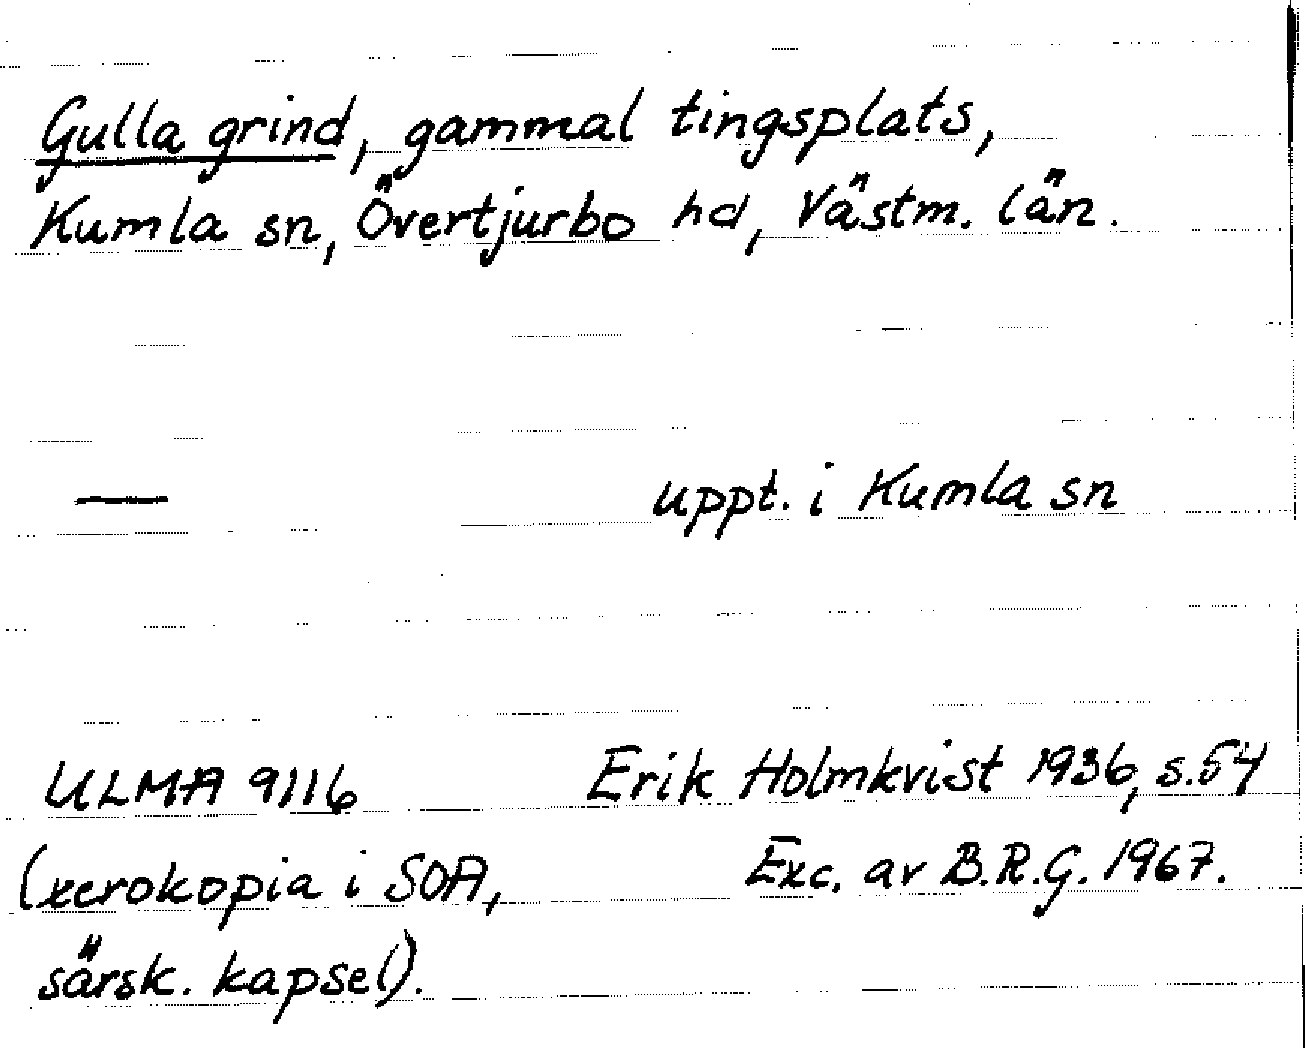 Gulla grind, gammal tingsplats,
Kumla sn, Övertjurbo hd, Västm. län.
— uppt. i Kumla sn
ULMA 9116 Erik Holmkvist 1936, s.54
(xerokopia i SOA, Exc. av B.R.G. 1967.
särsk. kapsel).